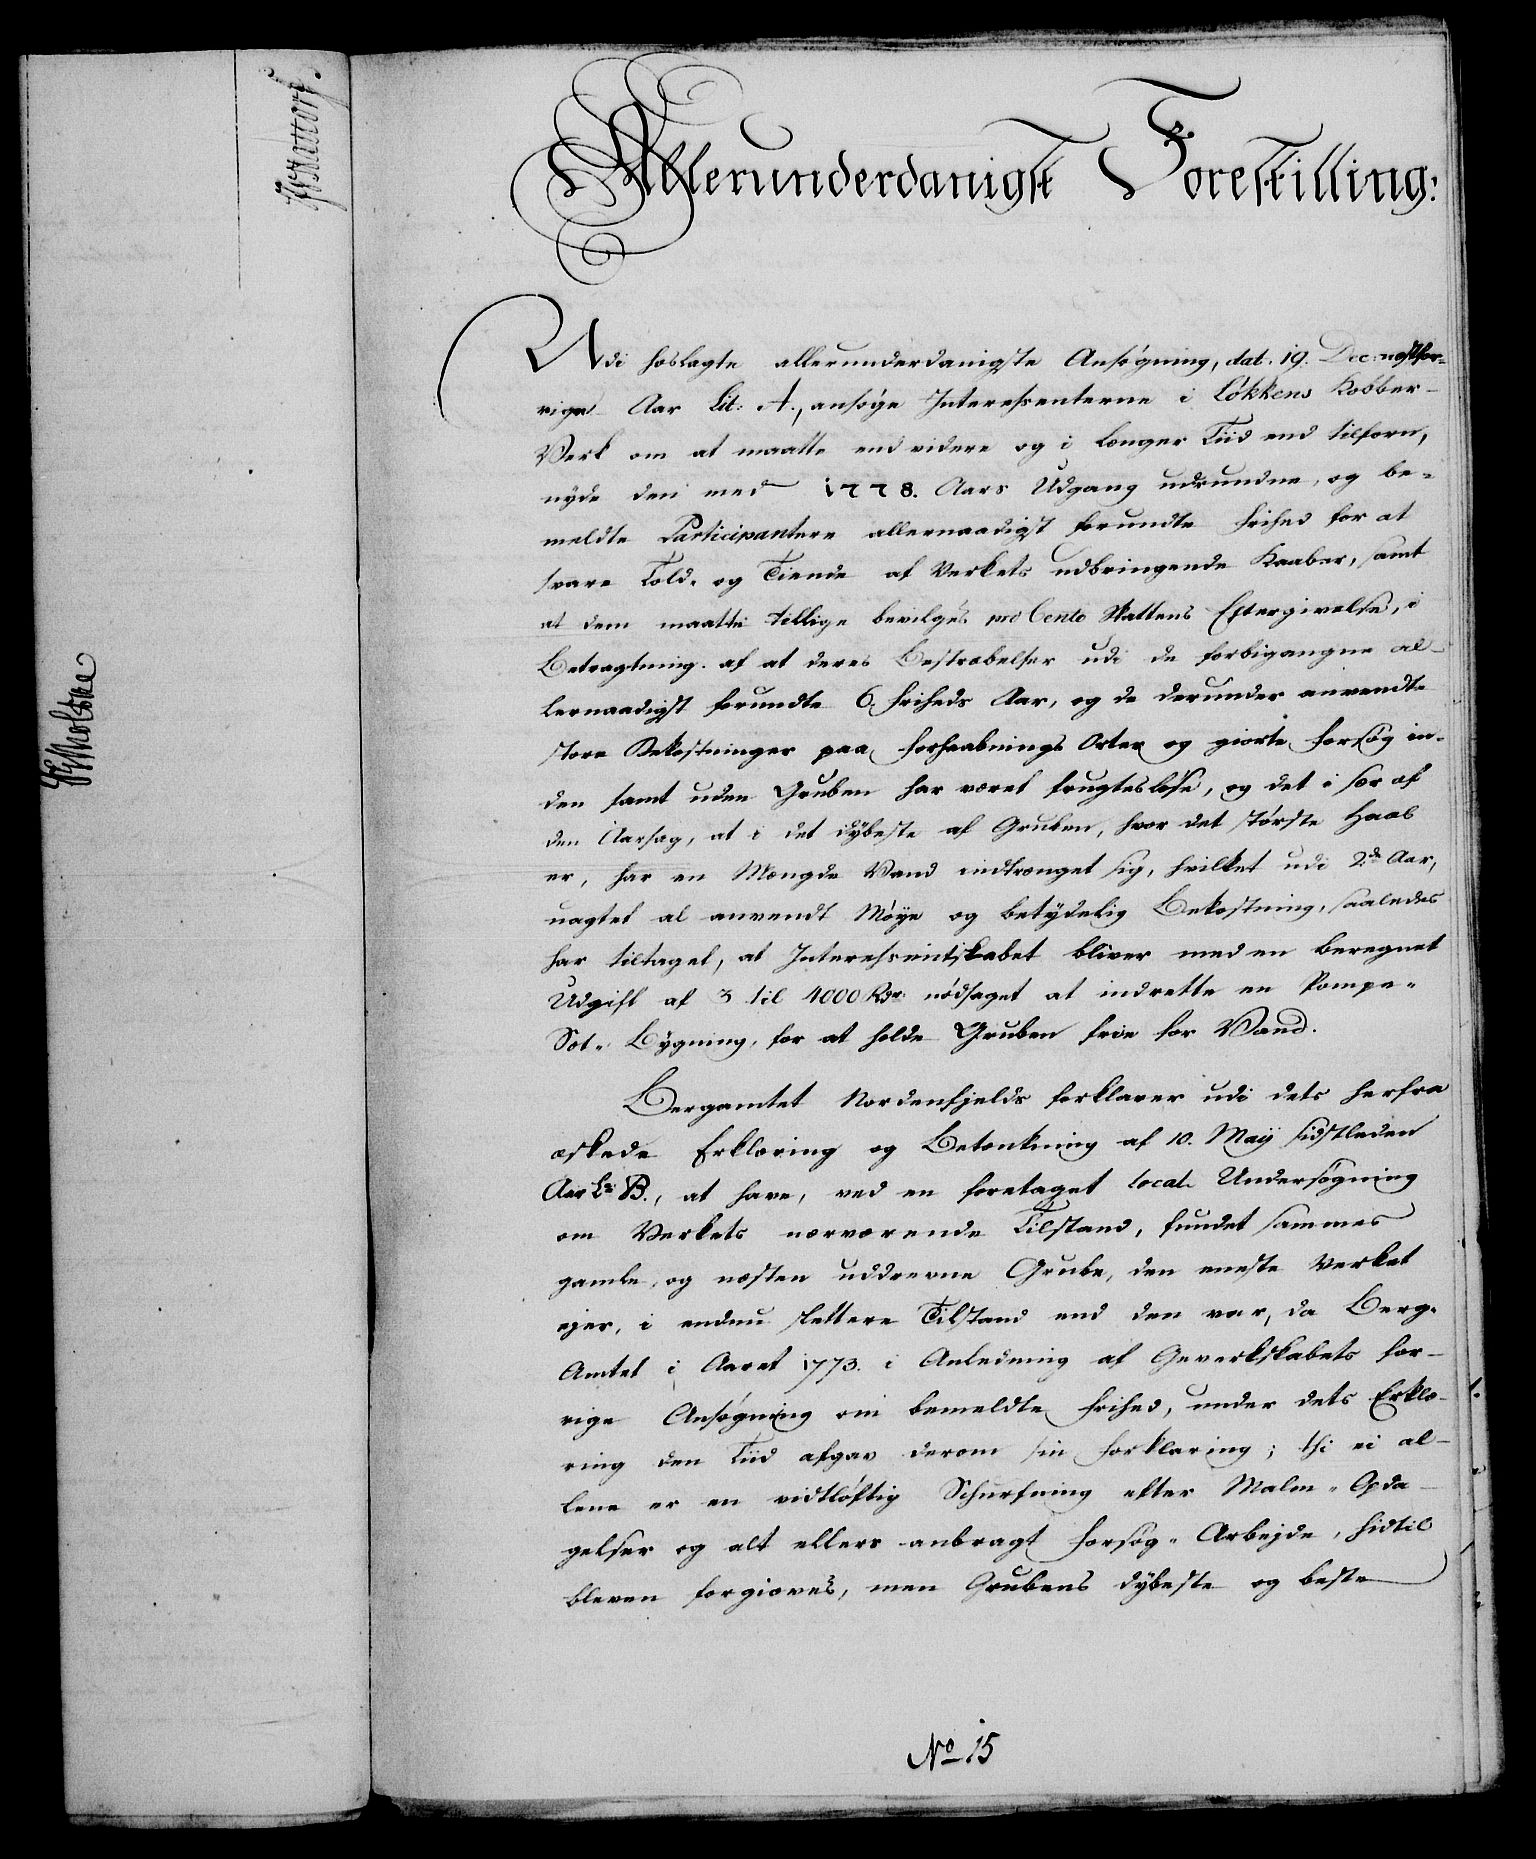 Allerunderdanigst Forestilling:
Udi hoslagte allerunderdanigste Ansøgning, dat. 19. Dec: næstfor-
rige Aar Lit: A., ansøge Interessenterne i Løkkens Kobber-
Verk om at maatte end videre og i længer Tiid end tilforn,
nyde den med 1778. Aars Udgang udrundne, og be-
meldte Participantere allernaadigst forundte Frihed for at
svare Told- og Tiende af Verkets udbringende Kaaber, samt
at dem maatte tillige bevilges pro Cento Skattens Eftergivelse, i
Betragtning af at deres Bestræbelser udi de forbigangne al-
lernaadigst forundte 6. Friheds Aar, og de derunder anvendte
store Bekostninger paa Forhaabnings Orter og giorte Forsøg in-
den samt uden Gruben har været frugtesløse, og det i sær af
den Aarsag, at i det dybeste af Gruben, hvor det største Haab
er, har en Mængde Vand indtrænget sig, hvilket udi 2de Aar,
uagtet al anvendt Møye og betydelig Bekostning, saaledes
har tiltaget, at Interessentskabet bliver med en beregnet
Udgift af 3 til 4000 Rdr. nødsaget at indrette en Pompe-
Bygning, for at holde Gruben frie for Vand.
Bergamtet Nordenfjelds forklarer udi dets herfra
æskede Erklæring og Betænkning af 10. Maij sidstleden
Aar Lr. B., at have, ved en foretaget local Undersøgning
om Verkets nærværende Tilstand, fundet sammes
gamle, og næsten uddrevne Grube, den eneste Verket
ejer, i endnu slettere Tilstand end den var, da Berg-
Amtet i Aaret 1773. i Anledning af Geverkskabets for-
rige Ansøgning om bemeldte Frihed, under dets Erklæ-
ring den Tiid afgav derom sin Forklaring; thi ei al-
lene er en vidtløftig Schurfning efter Malm-Opda-
gelser og alt ellers anbragt Forsøg-Arbejde, hidtil
bleven forgieves, men Grubens dybeste og beste
No 15